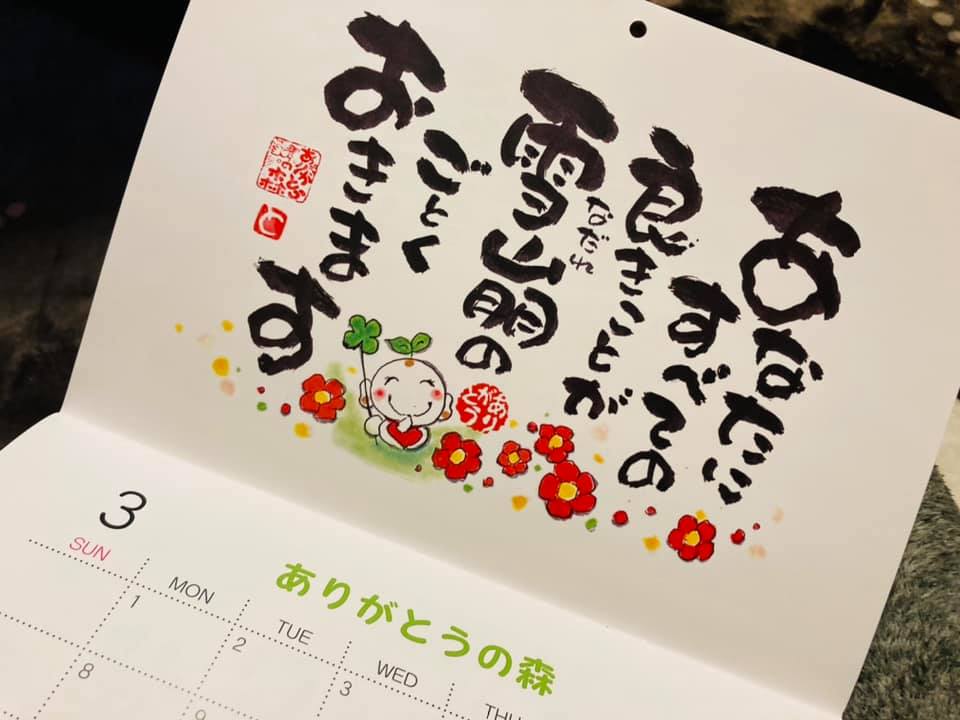 あなたに
すべての
良きことが
雪崩の
なだれ
ごとく
おきます
ありがとう
3
ありがとうの森
SUN MON TUE WED THU
1 2 3
8 9